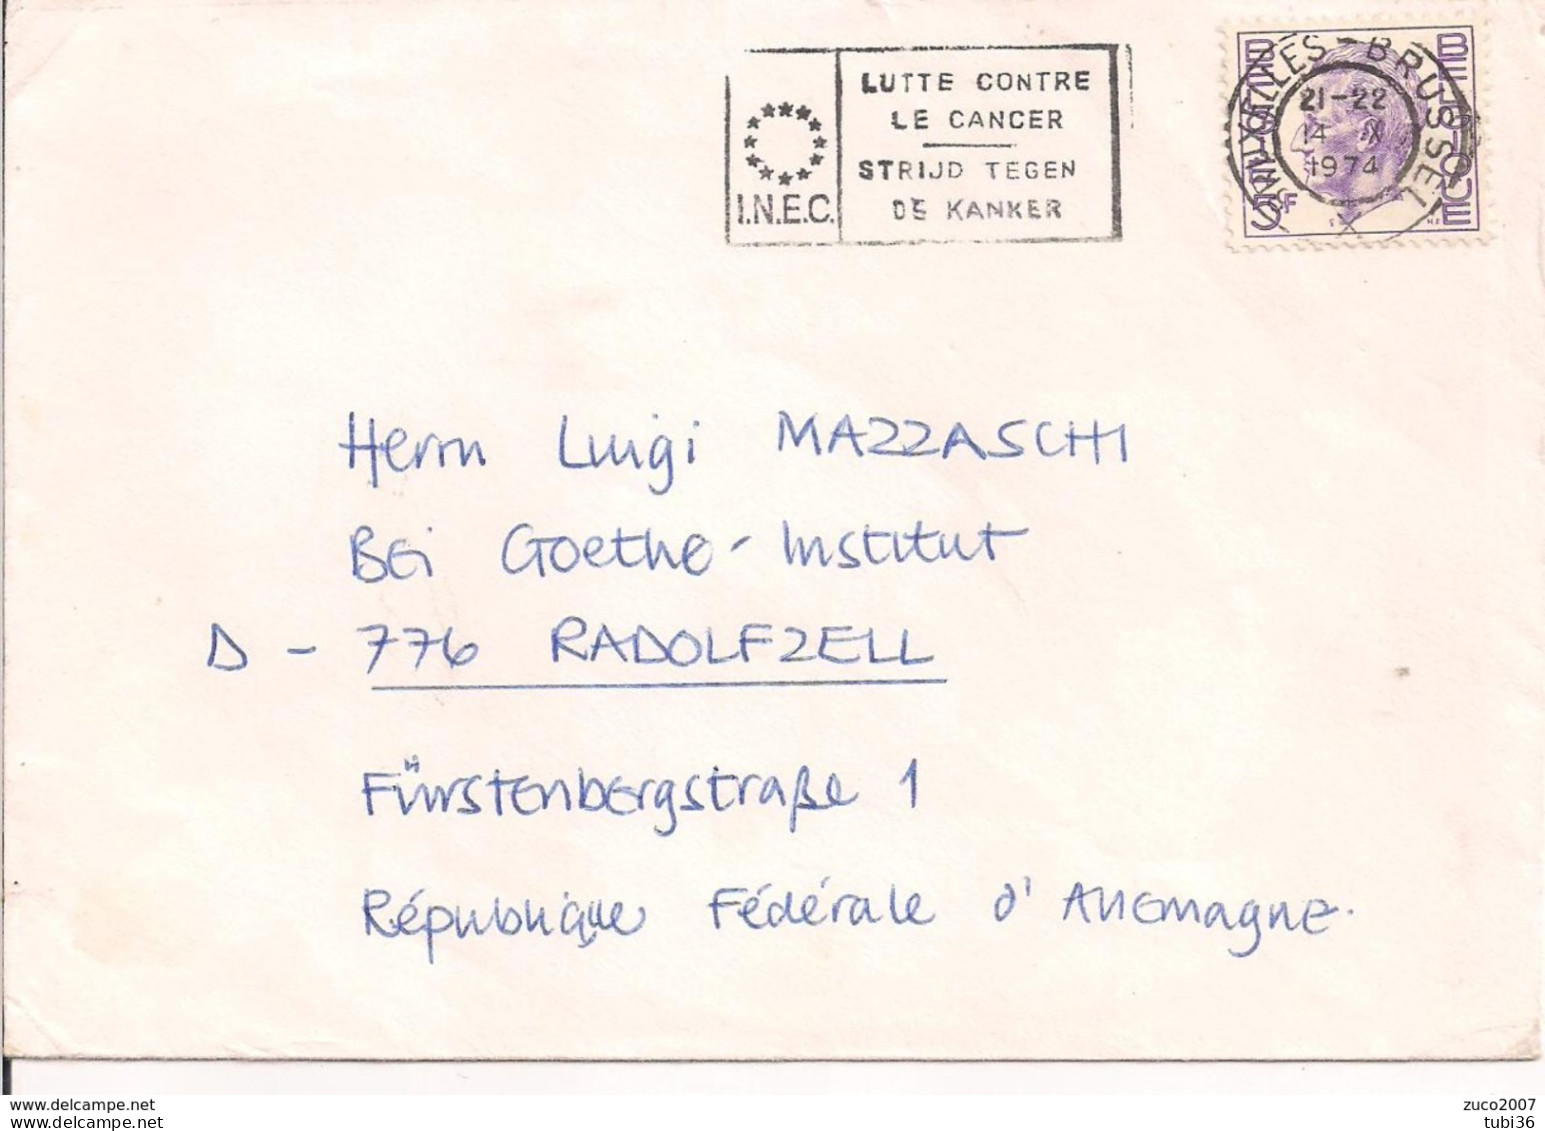 LUTTE CONTRE
LE CANCER
STRIJD TEGEN
DE KANKER
I.N.E.C.
BRUXELLES - BRUSSEL
21-22
14 X
1974
BELGIQUE
Herrn Luigi MAZZASCHI
Bei Goethe-Institut
D - 776 RADOLFZELL
Fürstenbergstraße 1
République Fédérale d'Allemagne.
www.delcampe.net
www.delcampe.net
zuco2007
tubi36